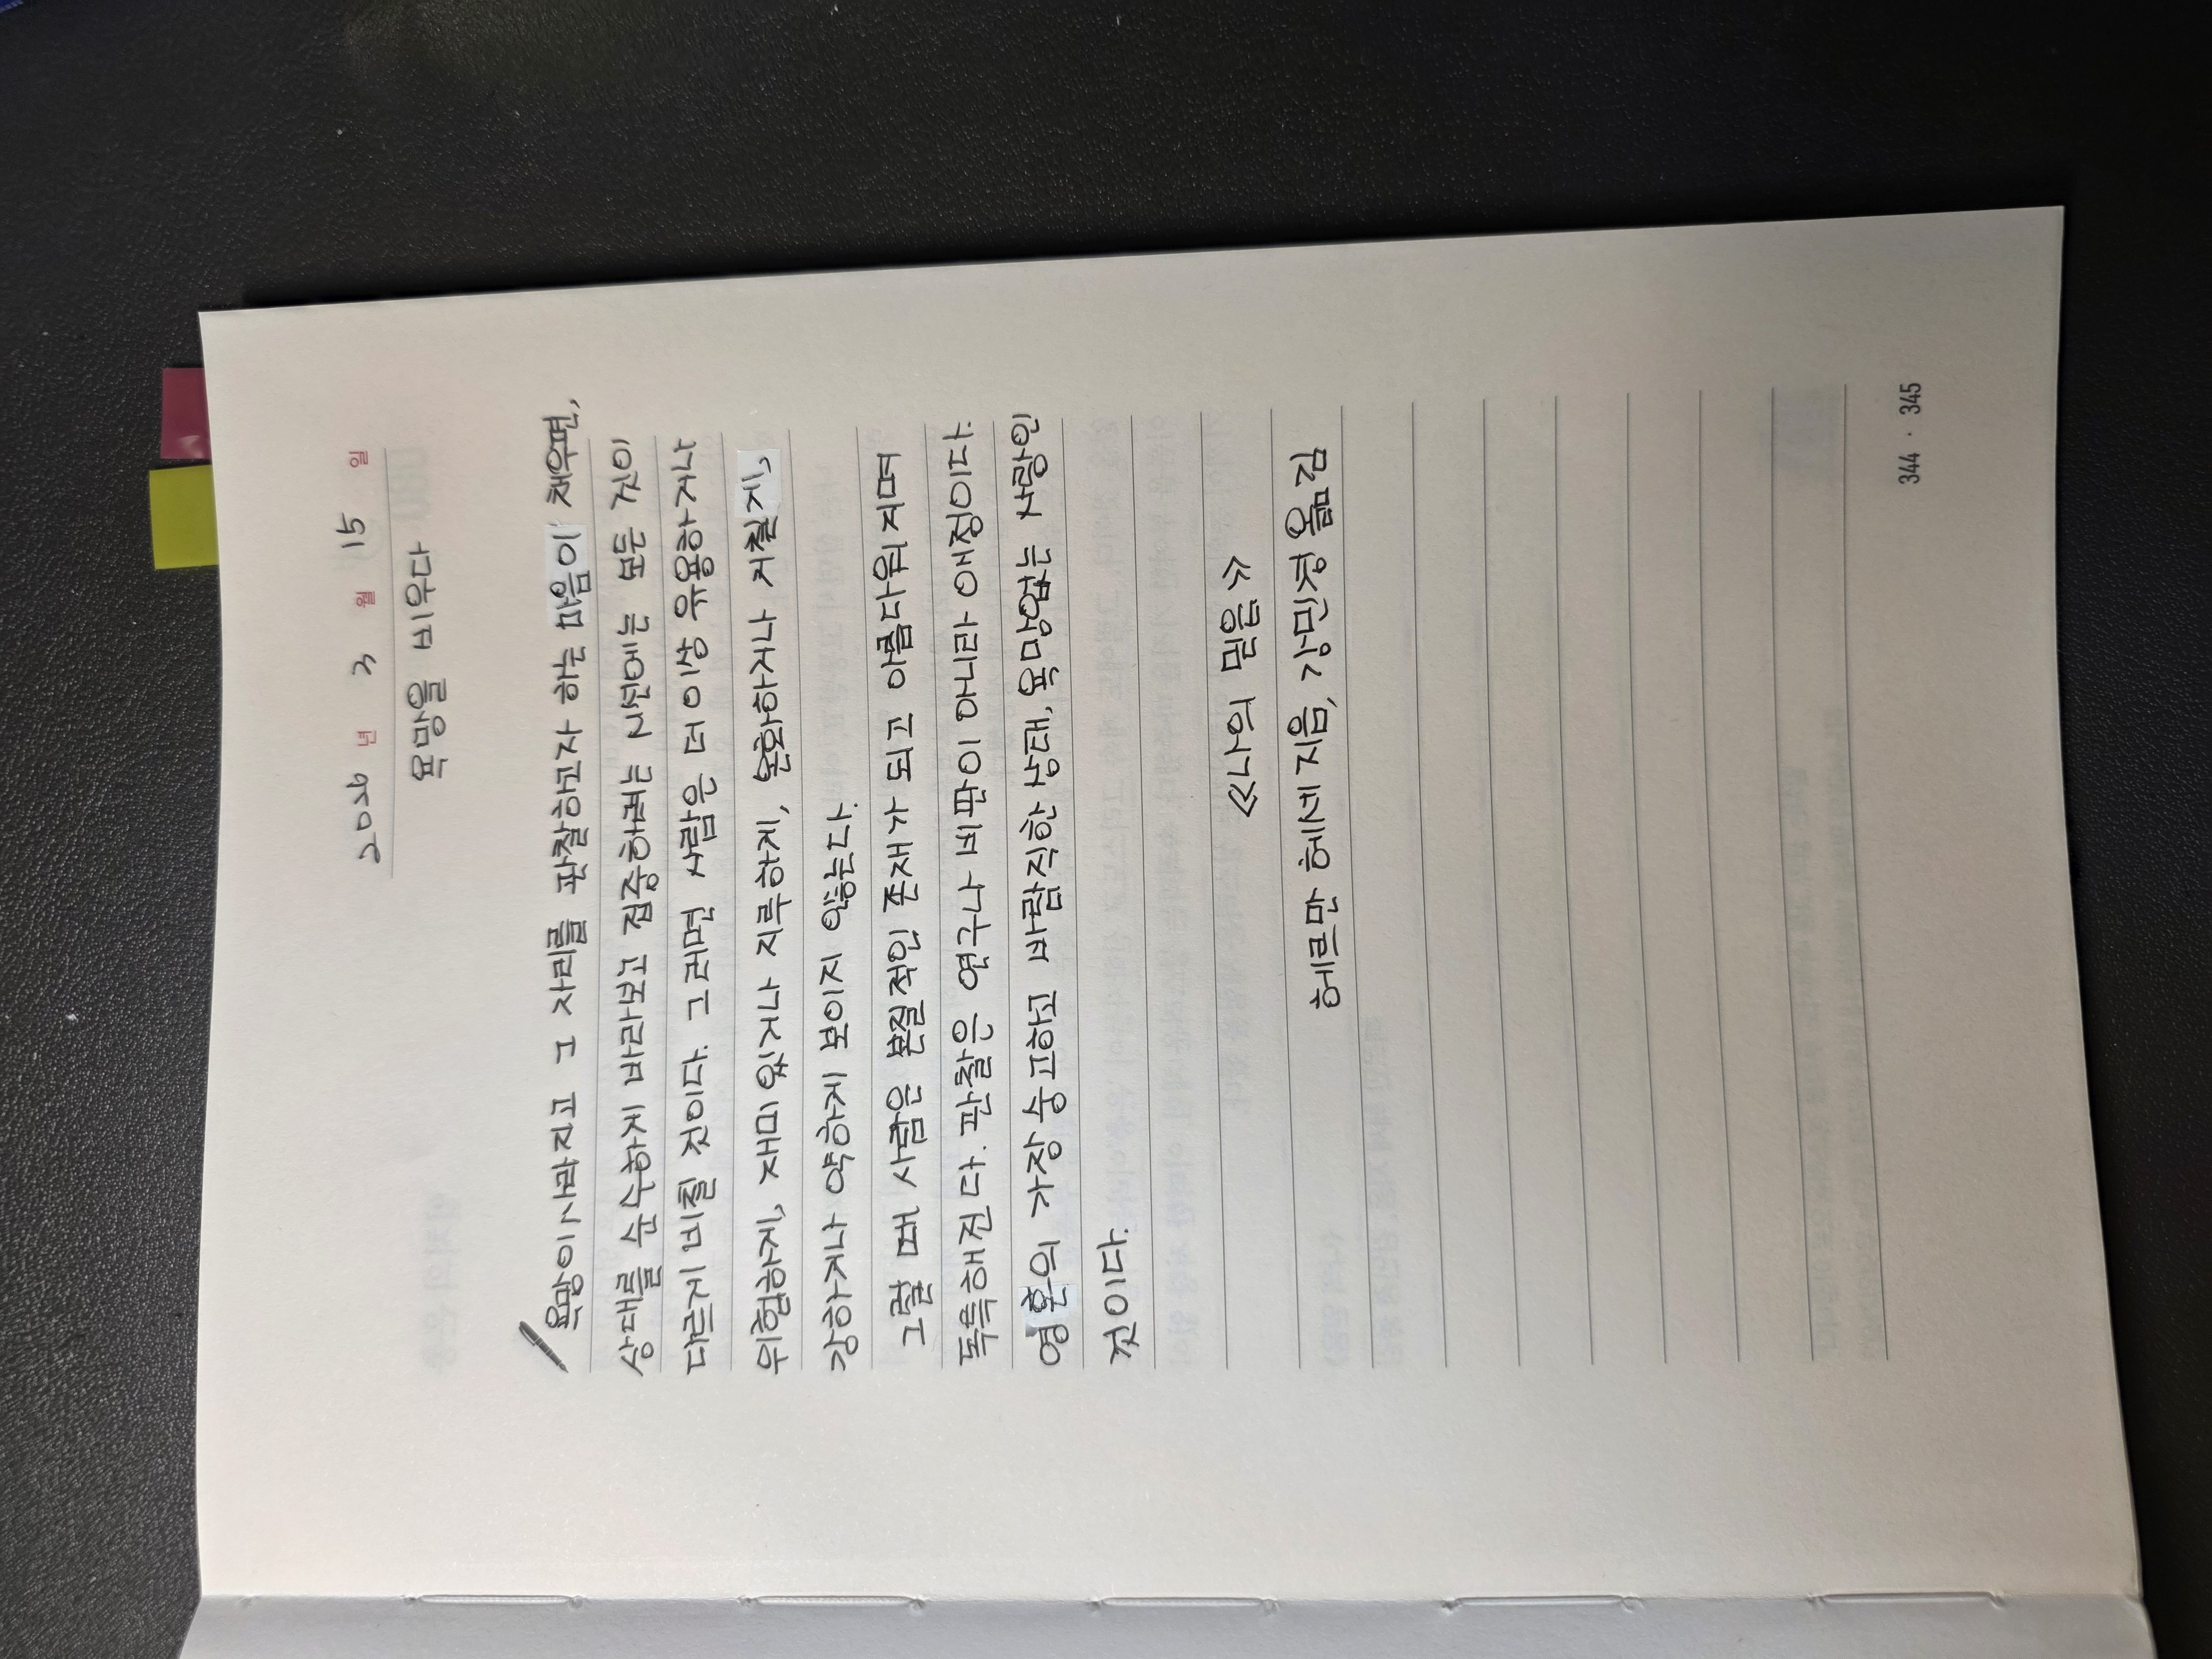 2025 년 3 월 15 일
욕망을 비우다
욕망이 사라지고 그 자리를 관찰하고자 하는 마음이 채우면,
상대를 순수하게 바라보고 집중하려는 시선에는 모든 것이
다르게 비칠 것이다. 그러면 사람은 더 이상 유용하거나
위험하게, 재미 있거나 지루하게, 온화하거나 거칠게,
강하거나 약하게 보이지 않는다.
그럴 때 사람은 본질적인 존재가 되고 아름다워지며
독특해진다. 관찰은 연구나 비판이 아니라 애정이다.
영혼의 가장 숭고하고 바람직한 상태, 욕망없는 사랑인
것이다.
《나의 믿음》
헤르만 헤세 지음, 강민경 옮김
344 · 345